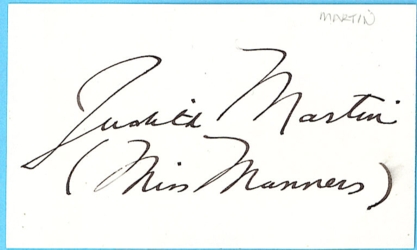 MARTIN
Judith Martin
(Miss Manners)